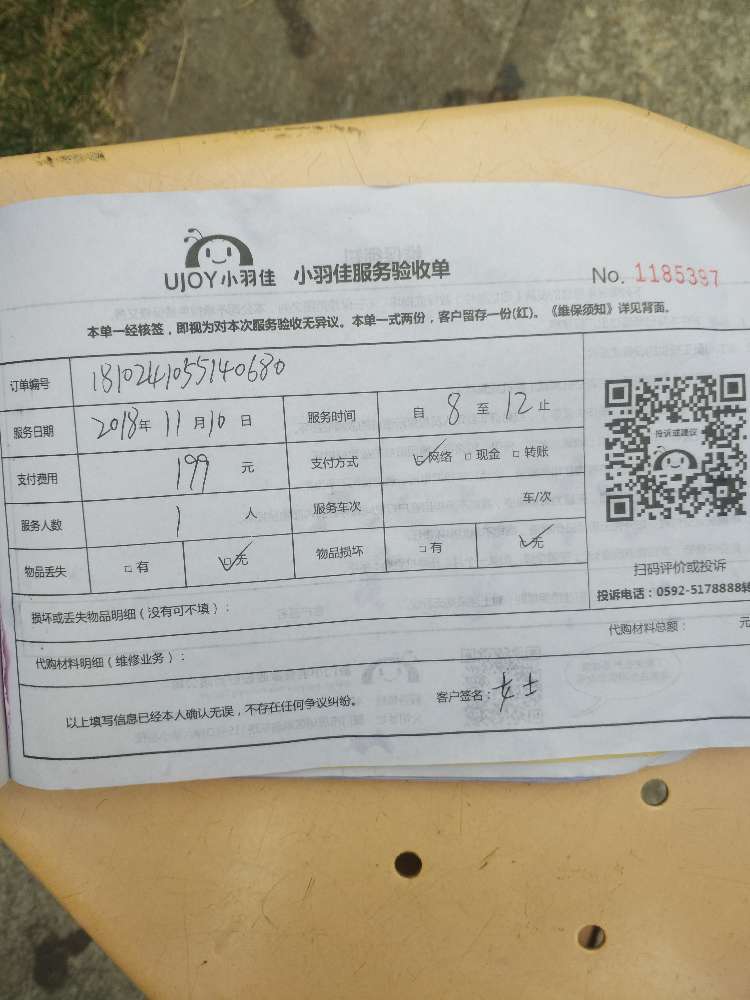 UJOY小羽佳 小羽佳服务验收单 No. 1185397
本单一经核签，即视为对本次服务验收无异议。本单一式两份，客户留存一份(红)。《维保须知》详见背面。
订单编号 1810241055140680
服务日期 2018年 11月10日 服务时间 自 8 至 12 止
支付费用 199 元 支付方式 ☑网络 □现金 □转账
服务人数 1 人 服务车次 车/次
物品丢失 □有 ☑无 物品损坏 □有 ☑无
投诉或建议
扫码评价或投诉
投诉电话：0592-5178888转
损坏或丢失物品明细（没有可不填）：
代购材料明细（维修业务）： 代购材料总额： 元
以上填写信息已经本人确认无误，不存在任何争议纠纷。 客户签名：